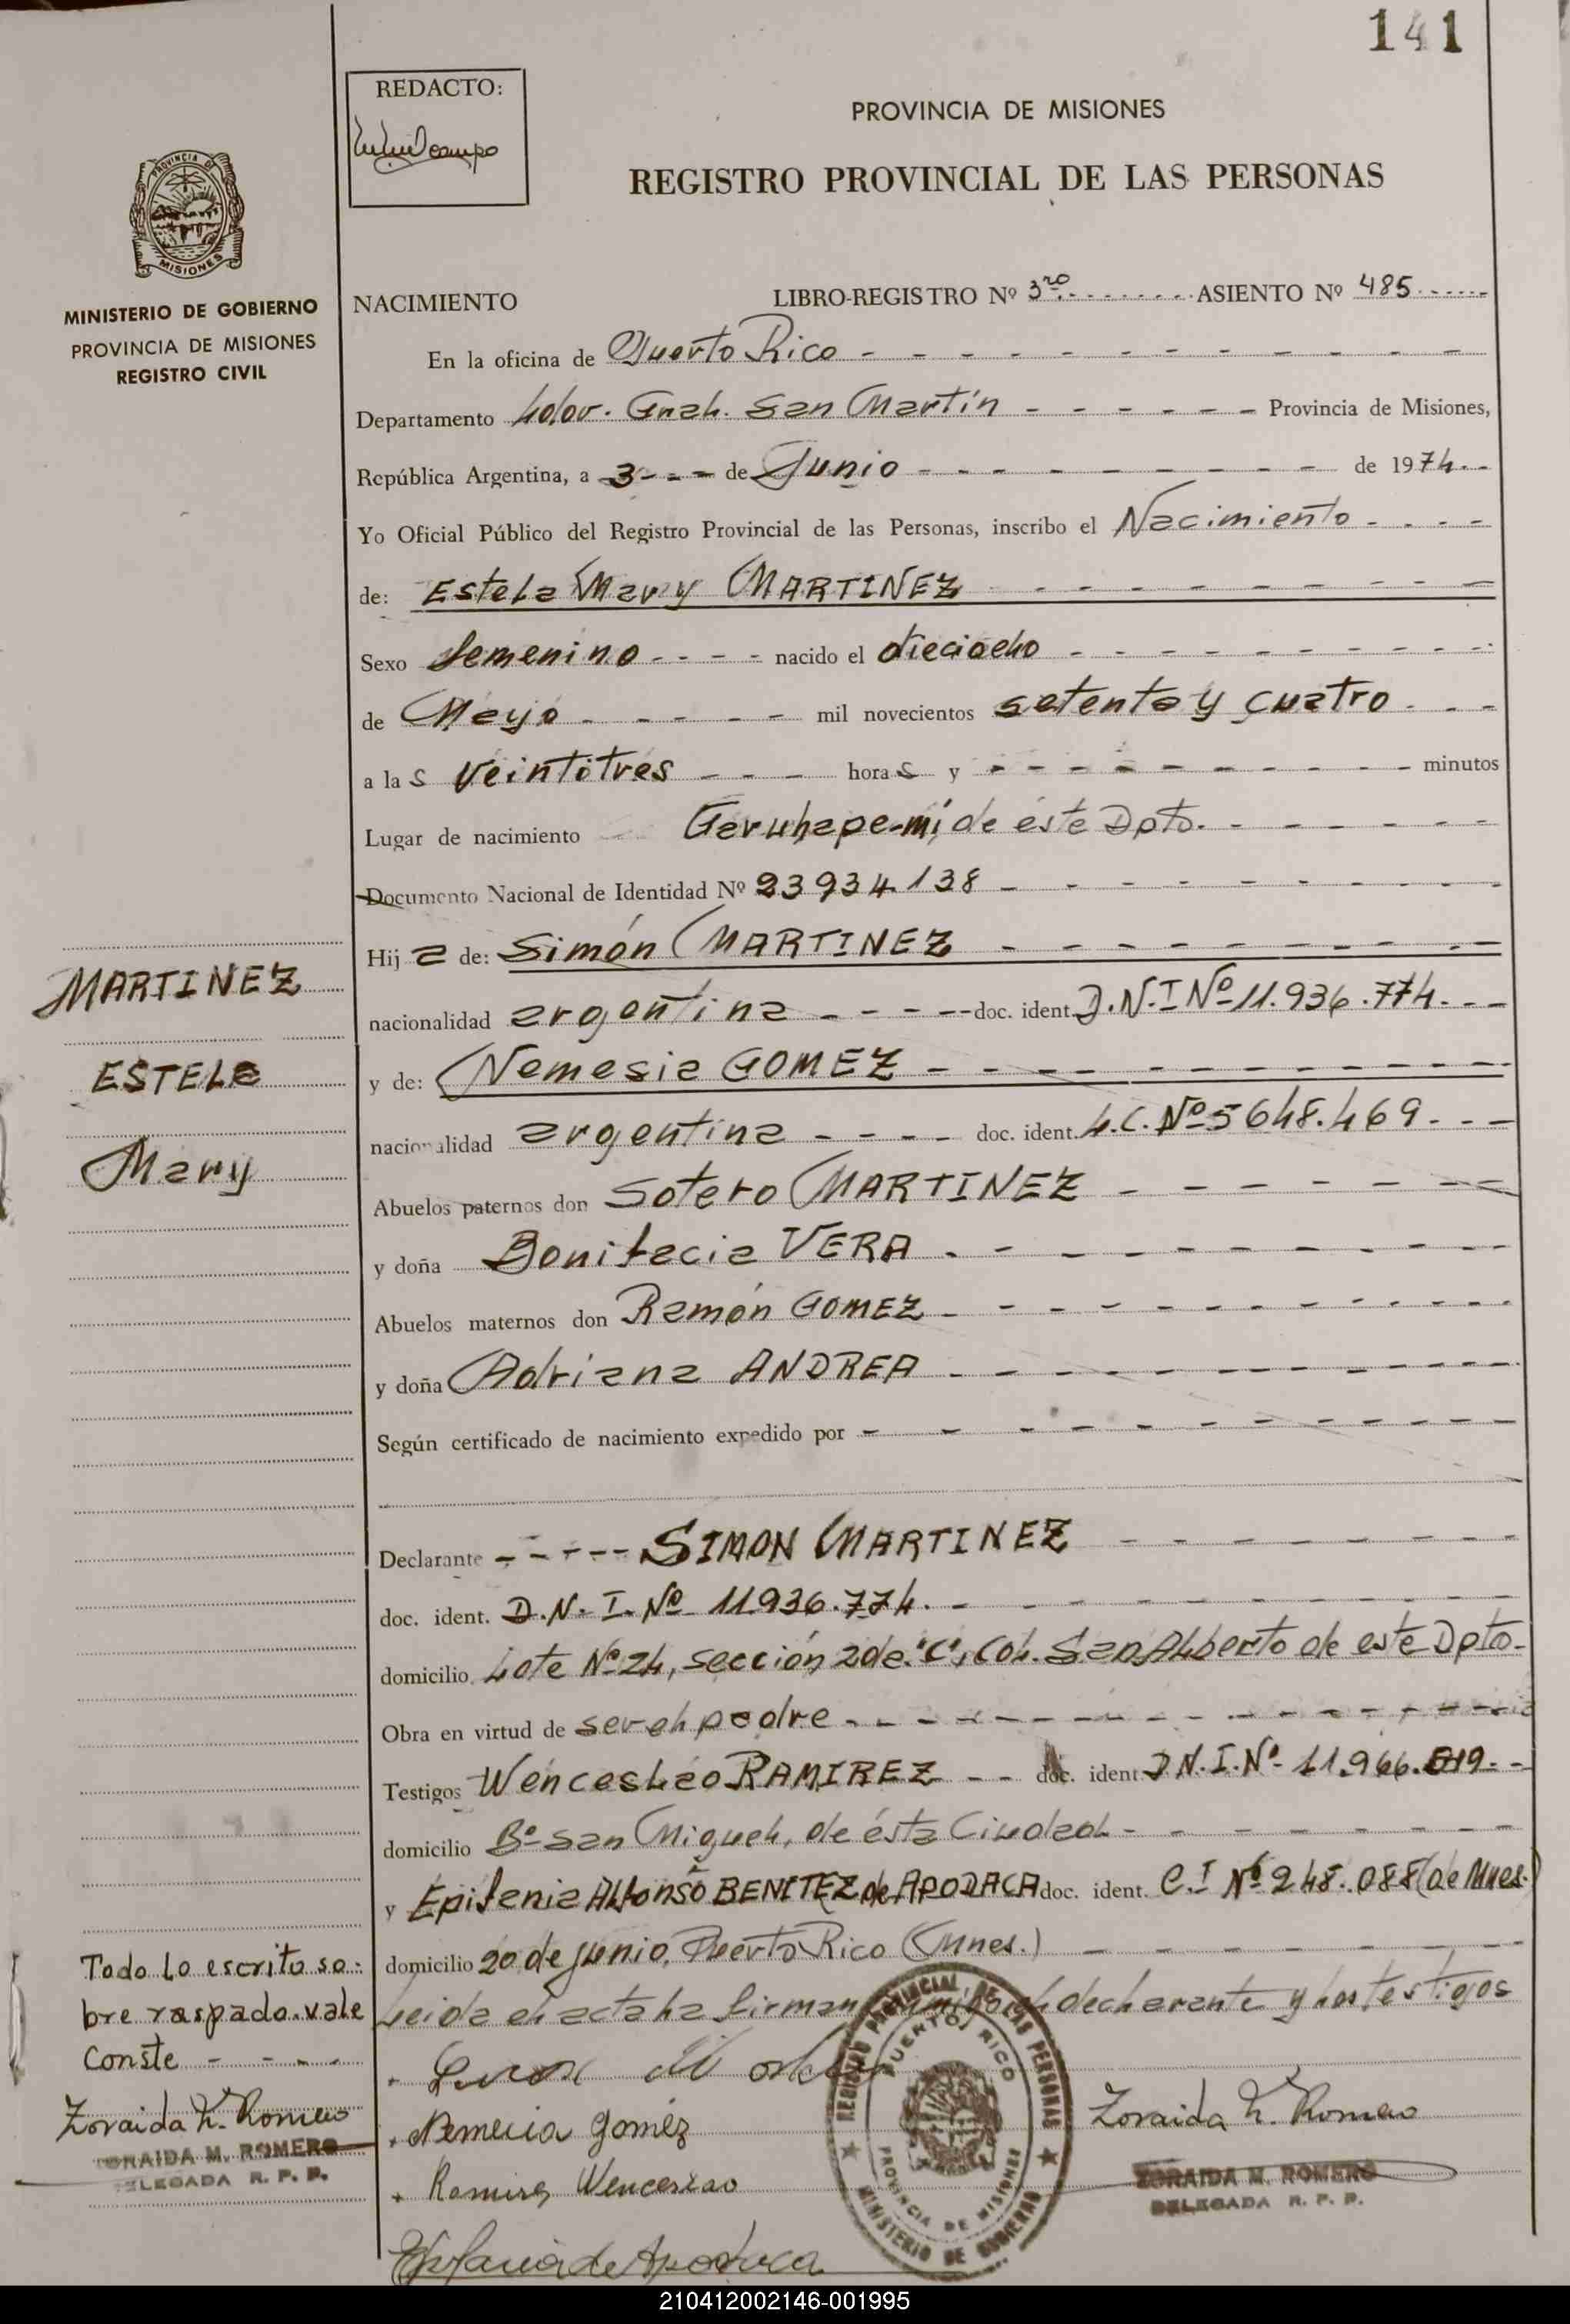 141
REDACTO:
PROVINCIA DE MISIONES
REGISTRO PROVINCIAL DE LAS PERSONAS
PROVINCIA DE
MISIONES
MINISTERIO DE GOBIERNO
PROVINCIA DE MISIONES
REGISTRO CIVIL
NACIMIENTO LIBRO-REGISTRO Nº 3ro. ASIENTO Nº 485
En la oficina de Puerto Rico
Departamento Ldor. Gral. San Martín Provincia de Misiones,
República Argentina, a 3 de Junio de 1974
Yo Oficial Público del Registro Provincial de las Personas, inscribo el Nacimiento
de: Estela Mary MARTINEZ
Sexo femenino nacido el dieciocho
de Mayo mil novecientos setenta y cuatro
a las veintitres horas y minutos
Lugar de nacimiento Garuhape-mi, de éste Dpto.
Documento Nacional de Identidad Nº 23934138
Hija de: Simón MARTINEZ
nacionalidad argentina doc. ident. D.N.I Nº 11.936.774
y de: Nemesia GOMEZ
nacionalidad argentina doc. ident. L.C. Nº 5648.469
Abuelos paternos don Sotero MARTINEZ
y doña Bonifacia VERA
Abuelos maternos don Ramón GOMEZ
y doña Adriana ANDREA
Según certificado de nacimiento expedido por
Declarante SIMON MARTINEZ
doc. ident. D.N.I. Nº 11936.774.
domicilio Lote Nº 24, sección 2da. "C", Col. San Alberto de este Dpto
Obra en virtud de ser el padre
Testigos Wenceslao RAMIREZ doc. ident D.N.I. Nº 11.966.819
domicilio Bº San Miguel, de ésta Ciudad
y Epifania Alfonso BENITEZ de APODACA doc. ident. C.I Nº 248.088 (de Mnes.)
domicilio 20 de junio, Puerto Rico (Mnes.)
Leida el acta la firman conmigo el declarante y los testigos
Nemecia Goméz
Ramirez Wenceslao
Epifania de Apodaca
MARTINEZ
ESTELA
Mary
Todo lo escrito so-
bre raspado. vale
Conste
Zoraida M. Romero
ZORAIDA M. ROMERO
DELEGADA R. P. P.
REGISTRO PROVINCIAL DE LAS PERSONAS
PUERTO RICO
PROVINCIA DE MISIONES
MINISTERIO DE GOBIERNO
Zoraida M. Romero
ZORAIDA M. ROMERO
DELEGADA R. P. P.
210412002146-001995